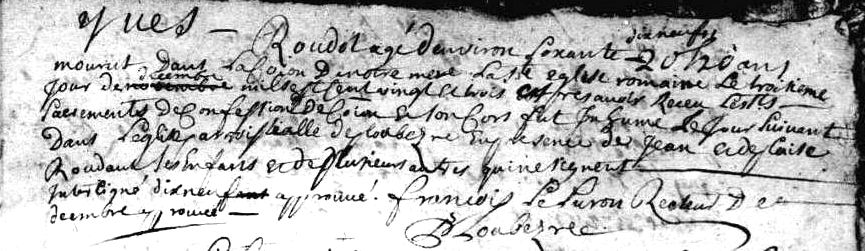 yves -
Roudot agé denviron soixante dixneufs ans
mourut dans la Coion de notre mere la ste eglise romaine le troisième
jour de novembre decembre mil sept cent vingt et trois apres avoir receu les sts
sacrements de Confession de Coion et son Cors fut inhumé le jour suivant
dans leglise paroissialle de Loubezre en presence de jean et de
Roudaut ses enfans et de plusieurs autres qui ne signent
interligné dixneuf approuvé. francois Le Luron Recteur De
decembre approuvé - Ploubezrec